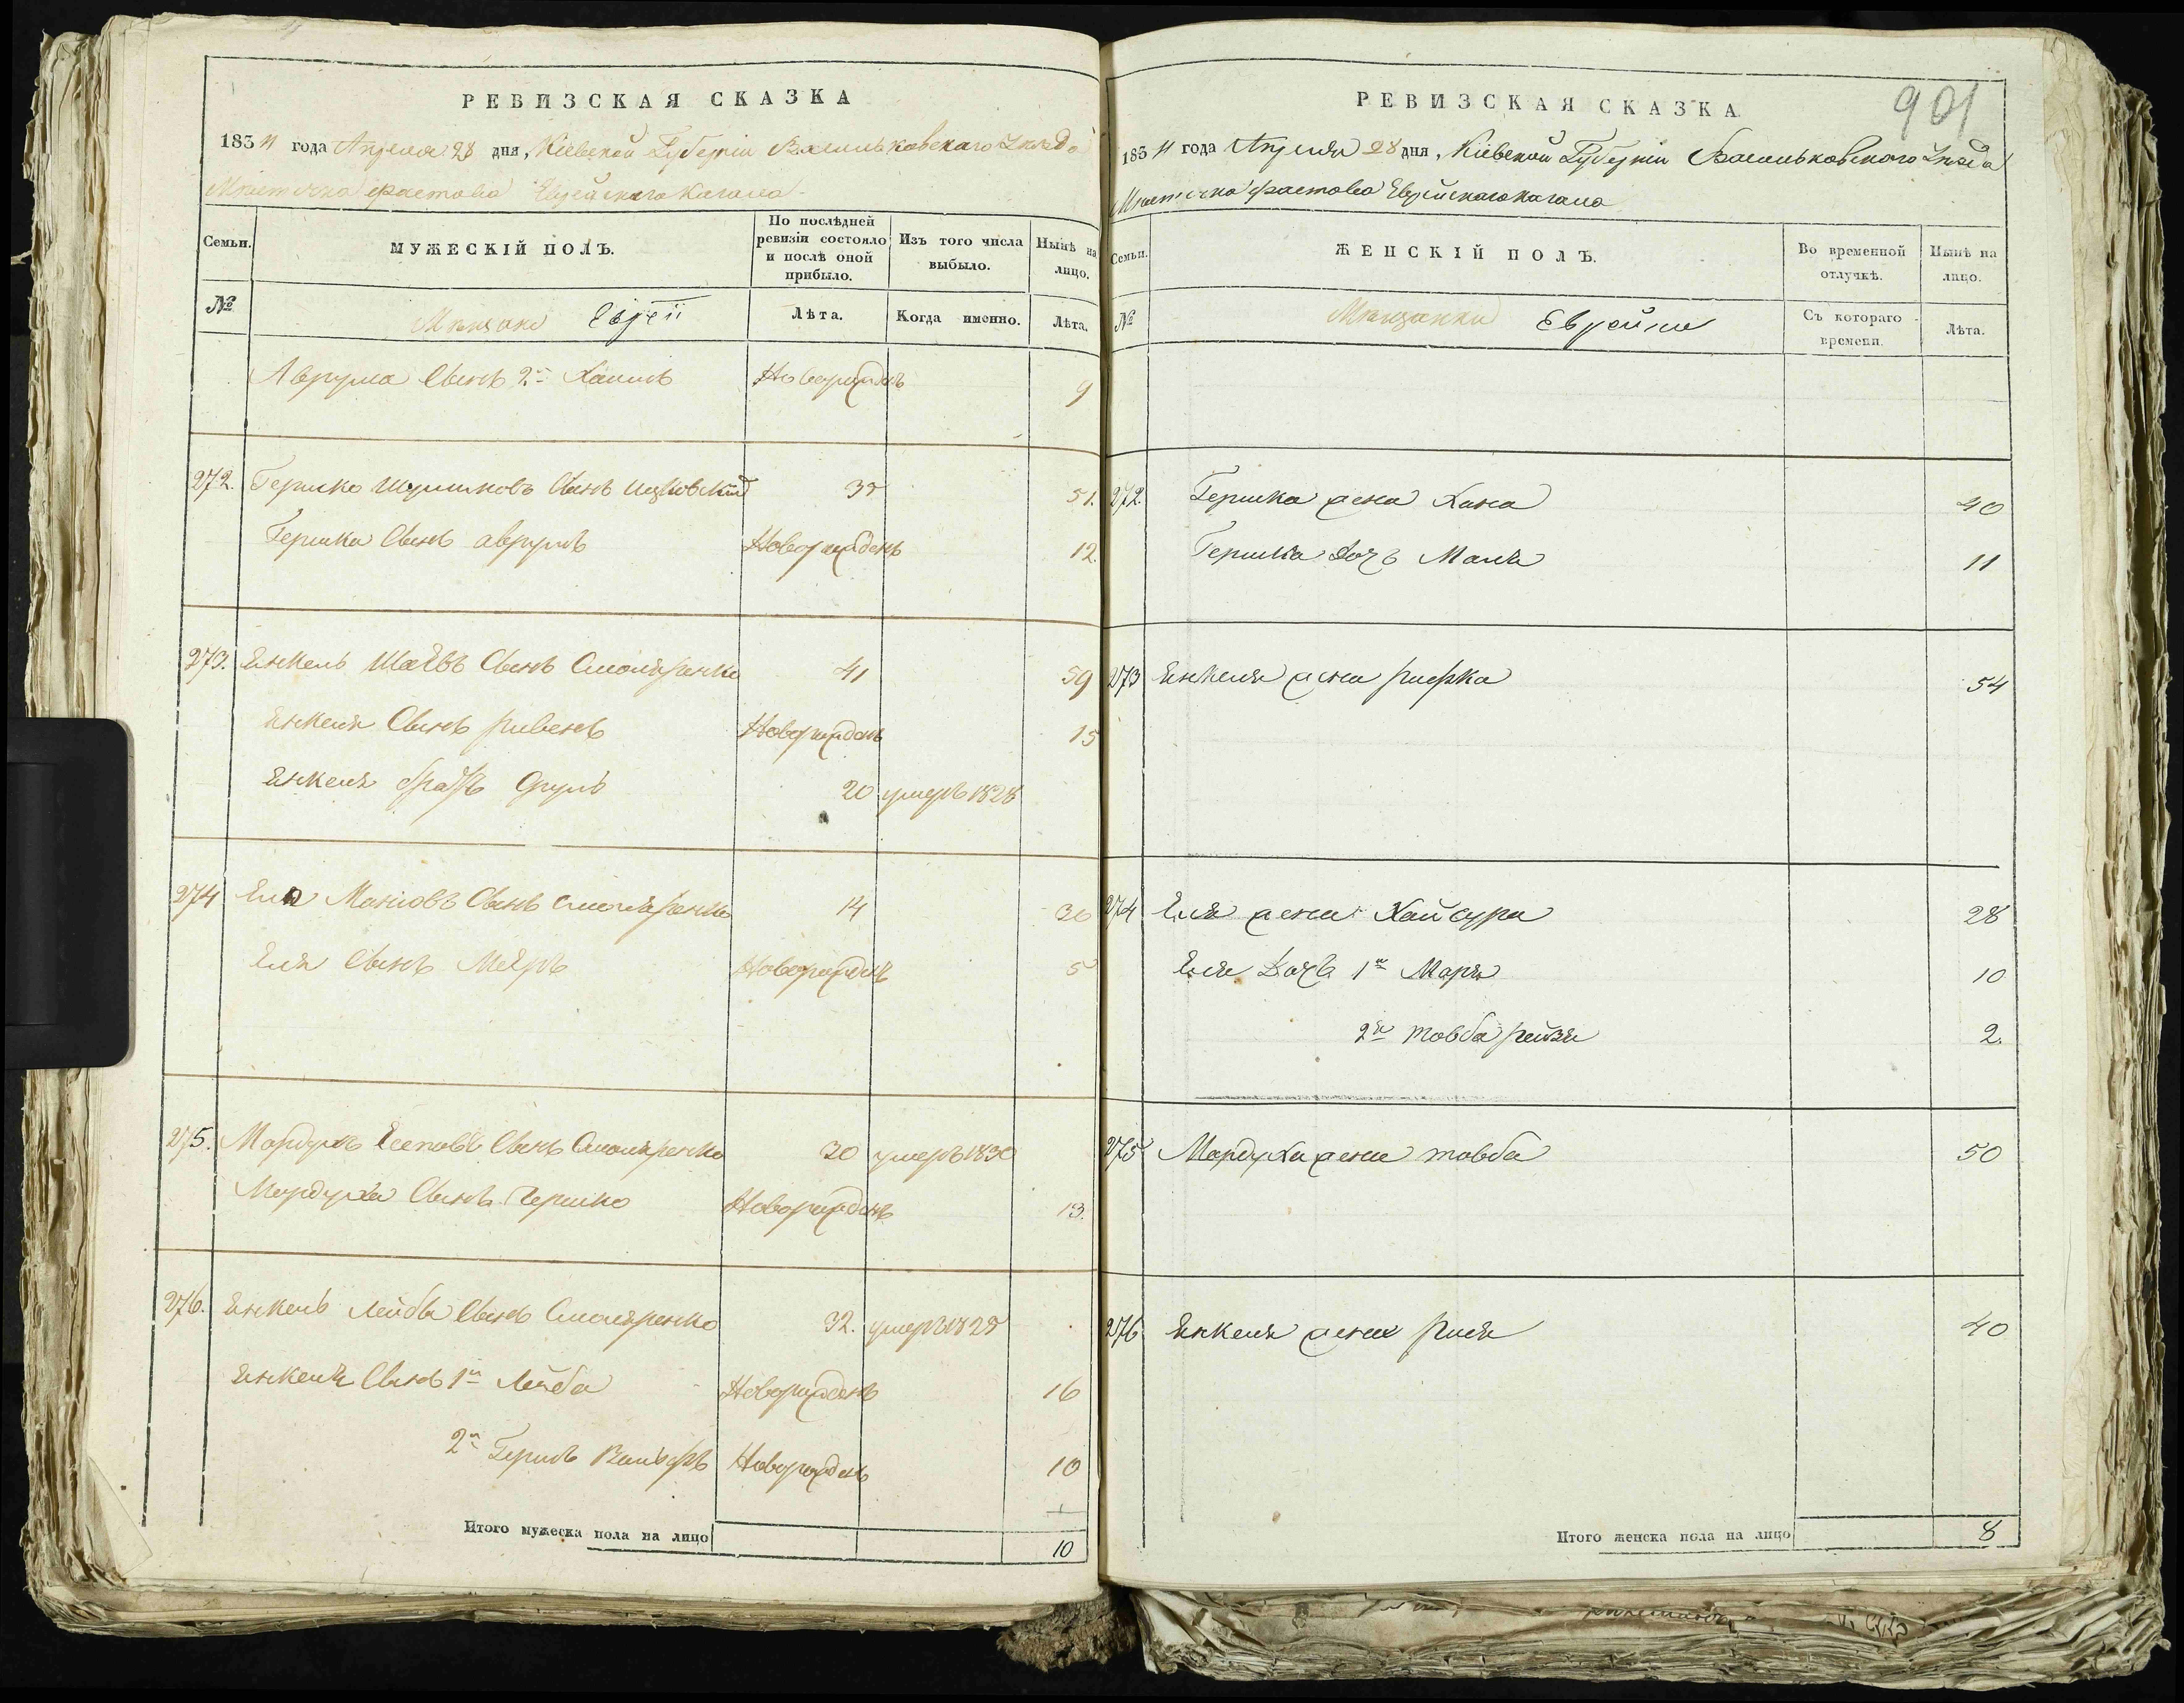 РЕВИЗСКАЯ СКАЗКА
1834 года Апреля 28 дня, Кіевской Губерніи Васильковского Уезда
Местечка Фастова Еврейскаго Кагала
Семьи.
МУЖЕСКІЙ ПОЛЪ.
По послѣдней ревизіи состояло и послѣ оной прибыло.
Изъ того числа выбыло.
Нынѣ на лицо.
№
Мещане Евреи
Лѣта.
Когда именно.
Лѣта.
Аврума Сынъ 2й Хаимъ Новорожденъ 9
272. Гершко Шулимовъ Сынъ 35 51.
Гершка Сынъ Аврумъ Новорожденъ 12.
273. Янкель Шаевъ Сынъ Смоляренко 41 59
Янкеля Сынъ Ривенъ Новорожденъ 15
Янкеля братъ Сруль 20 умеръ 1828
274 Еля Сынъ Смоляренко 14 30
Еля Сынъ Меяръ Новорожденъ 5
275. Мордухъ Сынъ Смоляренко 30 умеръ 1830
Мордуха Сынъ Гершко Новорожденъ 13.
276. Янкель Лейбы Сынъ Смоляренко 32. умеръ 1825
Янкеля Сынъ 1й Лейба Новорожденъ 16
2й Гершъ Вольфъ Новорожденъ 10
Итого мужеска пола на лицо 10
901
РЕВИЗСКАЯ СКАЗКА
1834 года Апреля 28 дня, Кіевской Губерніи Васильковского Уезда
Местечка Фастова Еврейскаго Кагала
Семьи.
ЖЕНСКІЙ ПОЛЪ.
Во временной отлучкѣ.
Нынѣ на лицо.
№
Мещанки Еврейки
Съ котораго времени.
Лѣта.
272. Гершка жена Хана 40
Гершка Дочь Маля 11
273 Янкеля жена Рифка 54
274 Еля жена Хайсура 28
Еля Дочь 1я Маря 10
2я Товба Рейзя 2.
275 Мордуха жена Товба 50
276 Янкеля жена 40
Итого женска пола на лицо 8